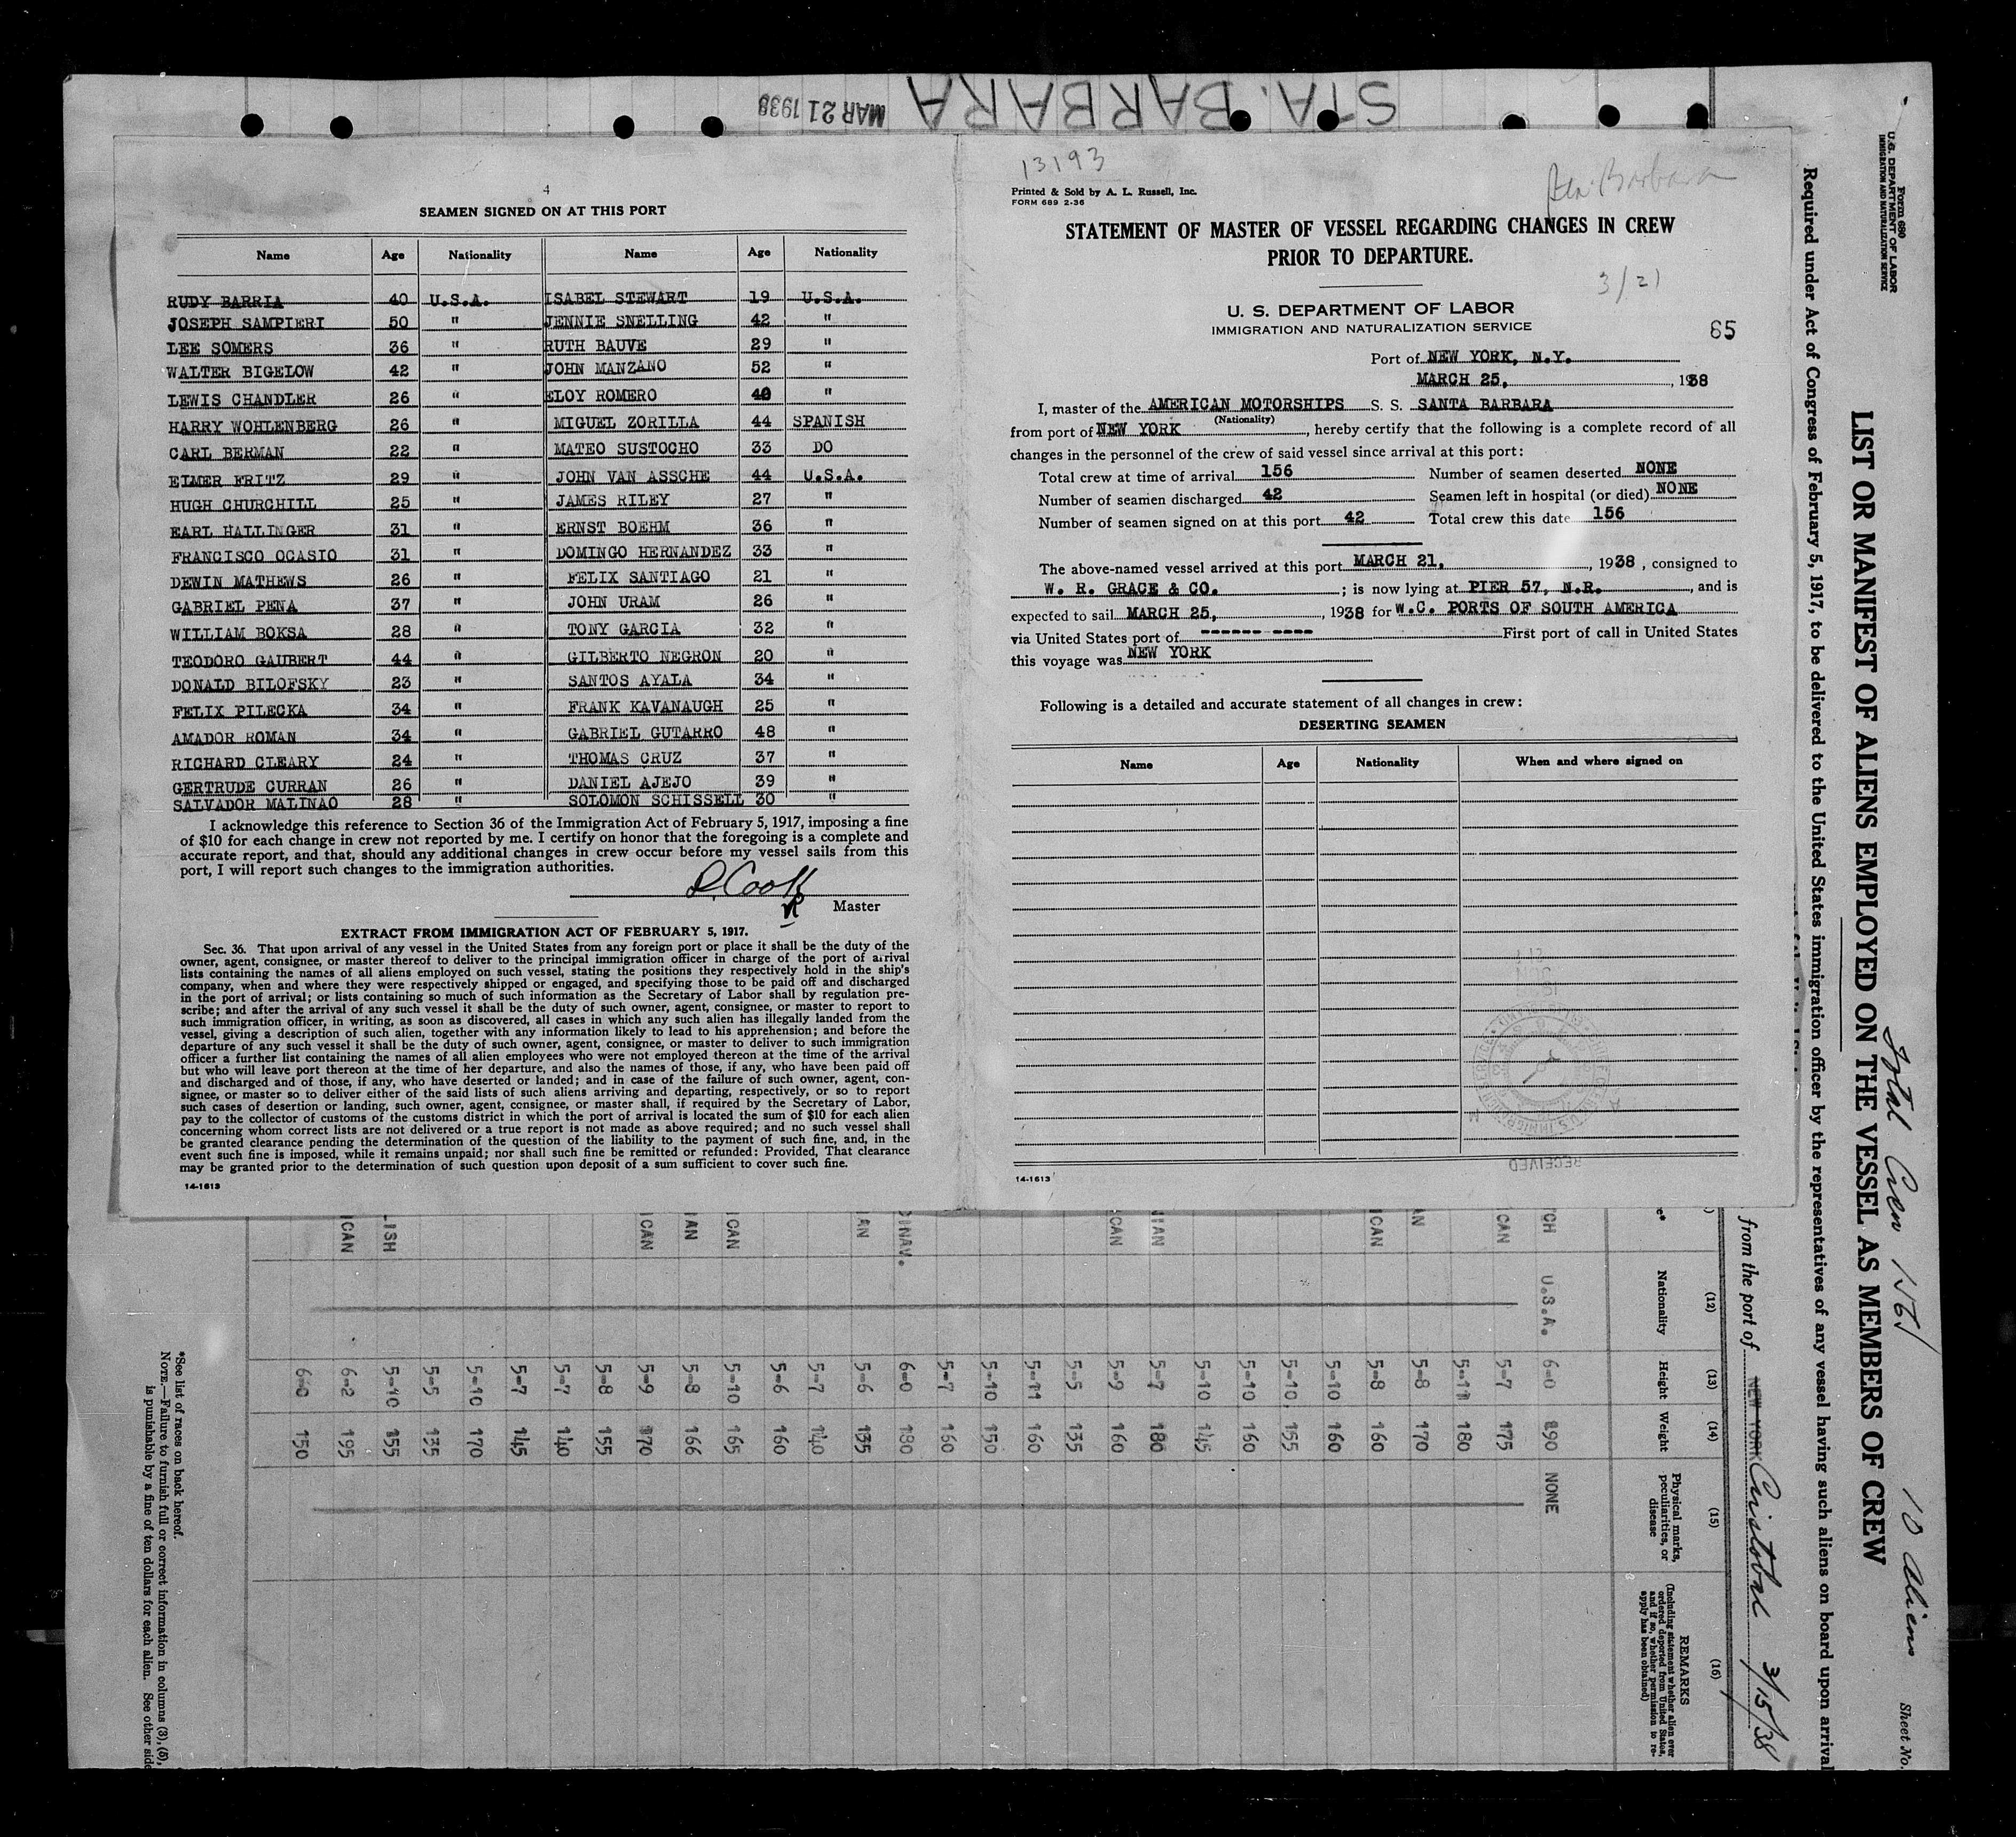 STA. BARBARA
MAR 21 1938
4
SEAMEN SIGNED ON AT THIS PORT
Name Age Nationality Name Age Nationality
RUDY BARRIA 40 U.S.A. ISABEL STEWART 19 U.S.A.
JOSEPH SAMPIERI 50 " JENNIE SNELLING 42 "
LEE SOMERS 36 " RUTH BAUVE 29 "
WALTER BIGELOW 42 " JOHN MANZANO 52 "
LEWIS CHANDLER 26 " ELOY ROMERO 40 "
HARRY WOHLENBERG 26 " MIGUEL ZORILLA 44 SPANISH
CARL BERMAN 22 " MATEO SUSTOCHO 33 DO
ELMER FRITZ 29 " JOHN VAN ASSCHE 44 U.S.A.
HUGH CHURCHILL 25 " JAMES RILEY 27 "
EARL HALLINGER 31 " ERNST BOEHM 36 "
FRANCISCO OCASIO 31 " DOMINGO HERNANDEZ 33 "
DEWIN MATHEWS 26 " FELIX SANTIAGO 21 "
GABRIEL PENA 37 " JOHN URAM 26 "
WILLIAM BOKSA 28 " TONY GARCIA 32 "
TEODORO GAUBERT 44 " GILBERTO NEGRON 20 "
DONALD BILOFSKY 23 " SANTOS AYALA 34 "
FELIX PILECKA 34 " FRANK KAVANAUGH 25 "
AMADOR ROMAN 34 " GABRIEL GUTARRO 48 "
RICHARD CLEARY 24 " THOMAS CRUZ 37 "
GERTRUDE CURRAN 26 " DANIEL AJEJO 39 "
SALVADOR MALINAO 28 " SOLOMON SCHISSELL 30 "
I acknowledge this reference to Section 36 of the Immigration Act of February 5, 1917, imposing a fine
of $10 for each change in crew not reported by me. I certify on honor that the foregoing is a complete and
accurate report, and that, should any additional changes in crew occur before my vessel sails from this
port, I will report such changes to the immigration authorities.
D. Cook
Master
EXTRACT FROM IMMIGRATION ACT OF FEBRUARY 5, 1917.
Sec. 36. That upon arrival of any vessel in the United States from any foreign port or place it shall be the duty of the
owner, agent, consignee, or master thereof to deliver to the principal immigration officer in charge of the port of arrival
lists containing the names of all aliens employed on such vessel, stating the positions they respectively hold in the ship's
company, when and where they were respectively shipped or engaged, and specifying those to be paid off and discharged
in the port of arrival; or lists containing so much of such information as the Secretary of Labor shall by regulation pre-
scribe; and after the arrival of any such vessel it shall be the duty of such owner, agent, consignee, or master to report to
such immigration officer, in writing, as soon as discovered, all cases in which any such alien has illegally landed from the
vessel, giving a description of such alien, together with any information likely to lead to his apprehension; and before the
departure of any such vessel it shall be the duty of such owner, agent, consignee, or master to deliver to such immigration
officer a further list containing the names of all alien employees who were not employed thereon at the time of the arrival
but who will leave port thereon at the time of her departure, and also the names of those, if any, who have been paid off
and discharged and of those, if any, who have deserted or landed; and in case of the failure of such owner, agent, con-
signee, or master so to deliver either of the said lists of such aliens arriving and departing, respectively, or so to report
such cases of desertion or landing, such owner, agent, consignee, or master shall, if required by the Secretary of Labor,
pay to the collector of customs of the customs district in which the port of arrival is located the sum of $10 for each alien
concerning whom correct lists are not delivered or a true report is not made as above required; and no such vessel shall
be granted clearance pending the determination of the question of the liability to the payment of such fine, and, in the
event such fine is imposed, while it remains unpaid; nor shall such fine be remitted or refunded: Provided, That clearance
may be granted prior to the determination of such question upon deposit of a sum sufficient to cover such fine.
14-1613
13193
Printed & Sold by A. L. Russell, Inc.
FORM 689 2-36
Barbara
STATEMENT OF MASTER OF VESSEL REGARDING CHANGES IN CREW
PRIOR TO DEPARTURE.
3/21
U. S. DEPARTMENT OF LABOR
IMMIGRATION AND NATURALIZATION SERVICE
65
Port of NEW YORK, N.Y.
MARCH 25, , 1938
I, master of the AMERICAN MOTORSHIPS S. S. SANTA BARBARA
(Nationality)
from port of NEW YORK, hereby certify that the following is a complete record of all
changes in the personnel of the crew of said vessel since arrival at this port:
Total crew at time of arrival 156 Number of seamen deserted NONE
Number of seamen discharged 42 Seamen left in hospital (or died) NONE
Number of seamen signed on at this port 42 Total crew this date 156
The above-named vessel arrived at this port MARCH 21, , 1938 , consigned to
W. R. GRACE & CO. ; is now lying at PIER 57, N.R. , and is
expected to sail MARCH 25, , 1938 for W.C. PORTS OF SOUTH AMERICA
via United States port of ------ ---- First port of call in United States
this voyage was NEW YORK
Following is a detailed and accurate statement of all changes in crew:
DESERTING SEAMEN
Name Age Nationality When and where signed on
RECEIVED
14-1613
Form 680
U.S. DEPARTMENT OF LABOR
IMMIGRATION AND NATURALIZATION SERVICE
LIST OR MANIFEST OF ALIENS EMPLOYED ON THE VESSEL AS MEMBERS OF CREW
Total Crew 156
10 Aliens
Sheet No.
Required under Act of Congress of February 5, 1917, to be delivered to the United States immigration officer by the representatives of any vessel having such aliens on board upon arrival
from the port of NEW YORK Cristobal 3/15/38
(12) (13) (14) (15) (16)
Nationality Height Weight Physical marks, peculiarities, or disease REMARKS
(Including statement whether alien ever ordered deported from United States, and if so, whether permission to re-apply has been obtained)
CH U.S.A. 6-0 190 NONE
CAN 5-7 175
5-11 180
AN 5-8 170
CAN 5-8 160
5-10 160
5-10 155
5-10 160
5-10 145
IAN 5-7 180
CAN 5-9 160
5-5 135
5-11 160
5-10 150
5-7 160
INAV. 6-0 180
IAN 5-6 135
5-7 140
5-6 160
CAN 5-10 165
IAN 5-8 166
CAN 5-9 170
5-8 155
5-7 140
5-7 145
5-10 170
5-5 135
LISH 5-10 155
CAN 6-2 195
6-0 150
*See list of races on back hereof.
NOTE.—Failure to furnish full or correct information in columns (3), (5),
is punishable by a fine of ten dollars for each alien. See other side